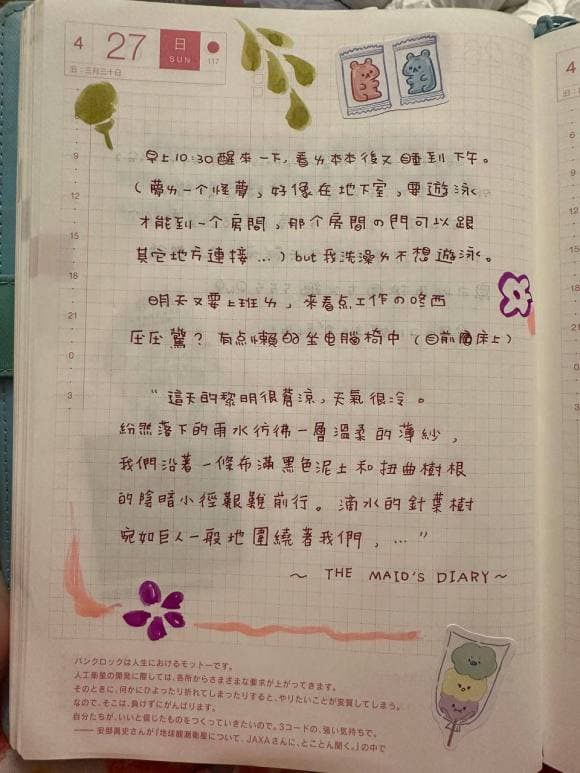 4 27 日 SUN 117
旧:三月三十日
早上10:30醒來一下,看ㄌ本本後又睡到下午。
(夢ㄌ一个怪夢,好像在地下室,要遊泳
才能到一个房間,那个房間の門可以跟
其它地方連接...)but我洗澡ㄌ不想遊泳。
明天又要上班ㄌ,來看点工作の咚西
压压驚?有点懶的坐电腦椅中(目前床上)
"這天的黎明很蒼涼,天氣很冷。
紛然落下的雨水彷彿一層溫柔的薄紗,
我們沿著一條布滿黑色泥土和扭曲樹根
的陰暗小徑艱難前行。滴水的針葉樹
宛如巨人一般地圍繞著我們,..."
~ THE MAID'S DIARY ~
9
12
15
18
21
0
3
パンクロックは人生におけるモットーです。
人工衛星の開発に際しては、各所からさまざまな要求が上がってきます。
そのときに、何かにひよったり折れてしまったりすると、やりたいことが変質してしまう。
なので、そこは、負けずにがんばります。
自分たちが、いいと信じたものをつくっていきたいので。3コードの、強い気持ちで。
—— 安部眞史さんが『地球観測衛星について、JAXAさんに、とことん聞く。』の中で
4